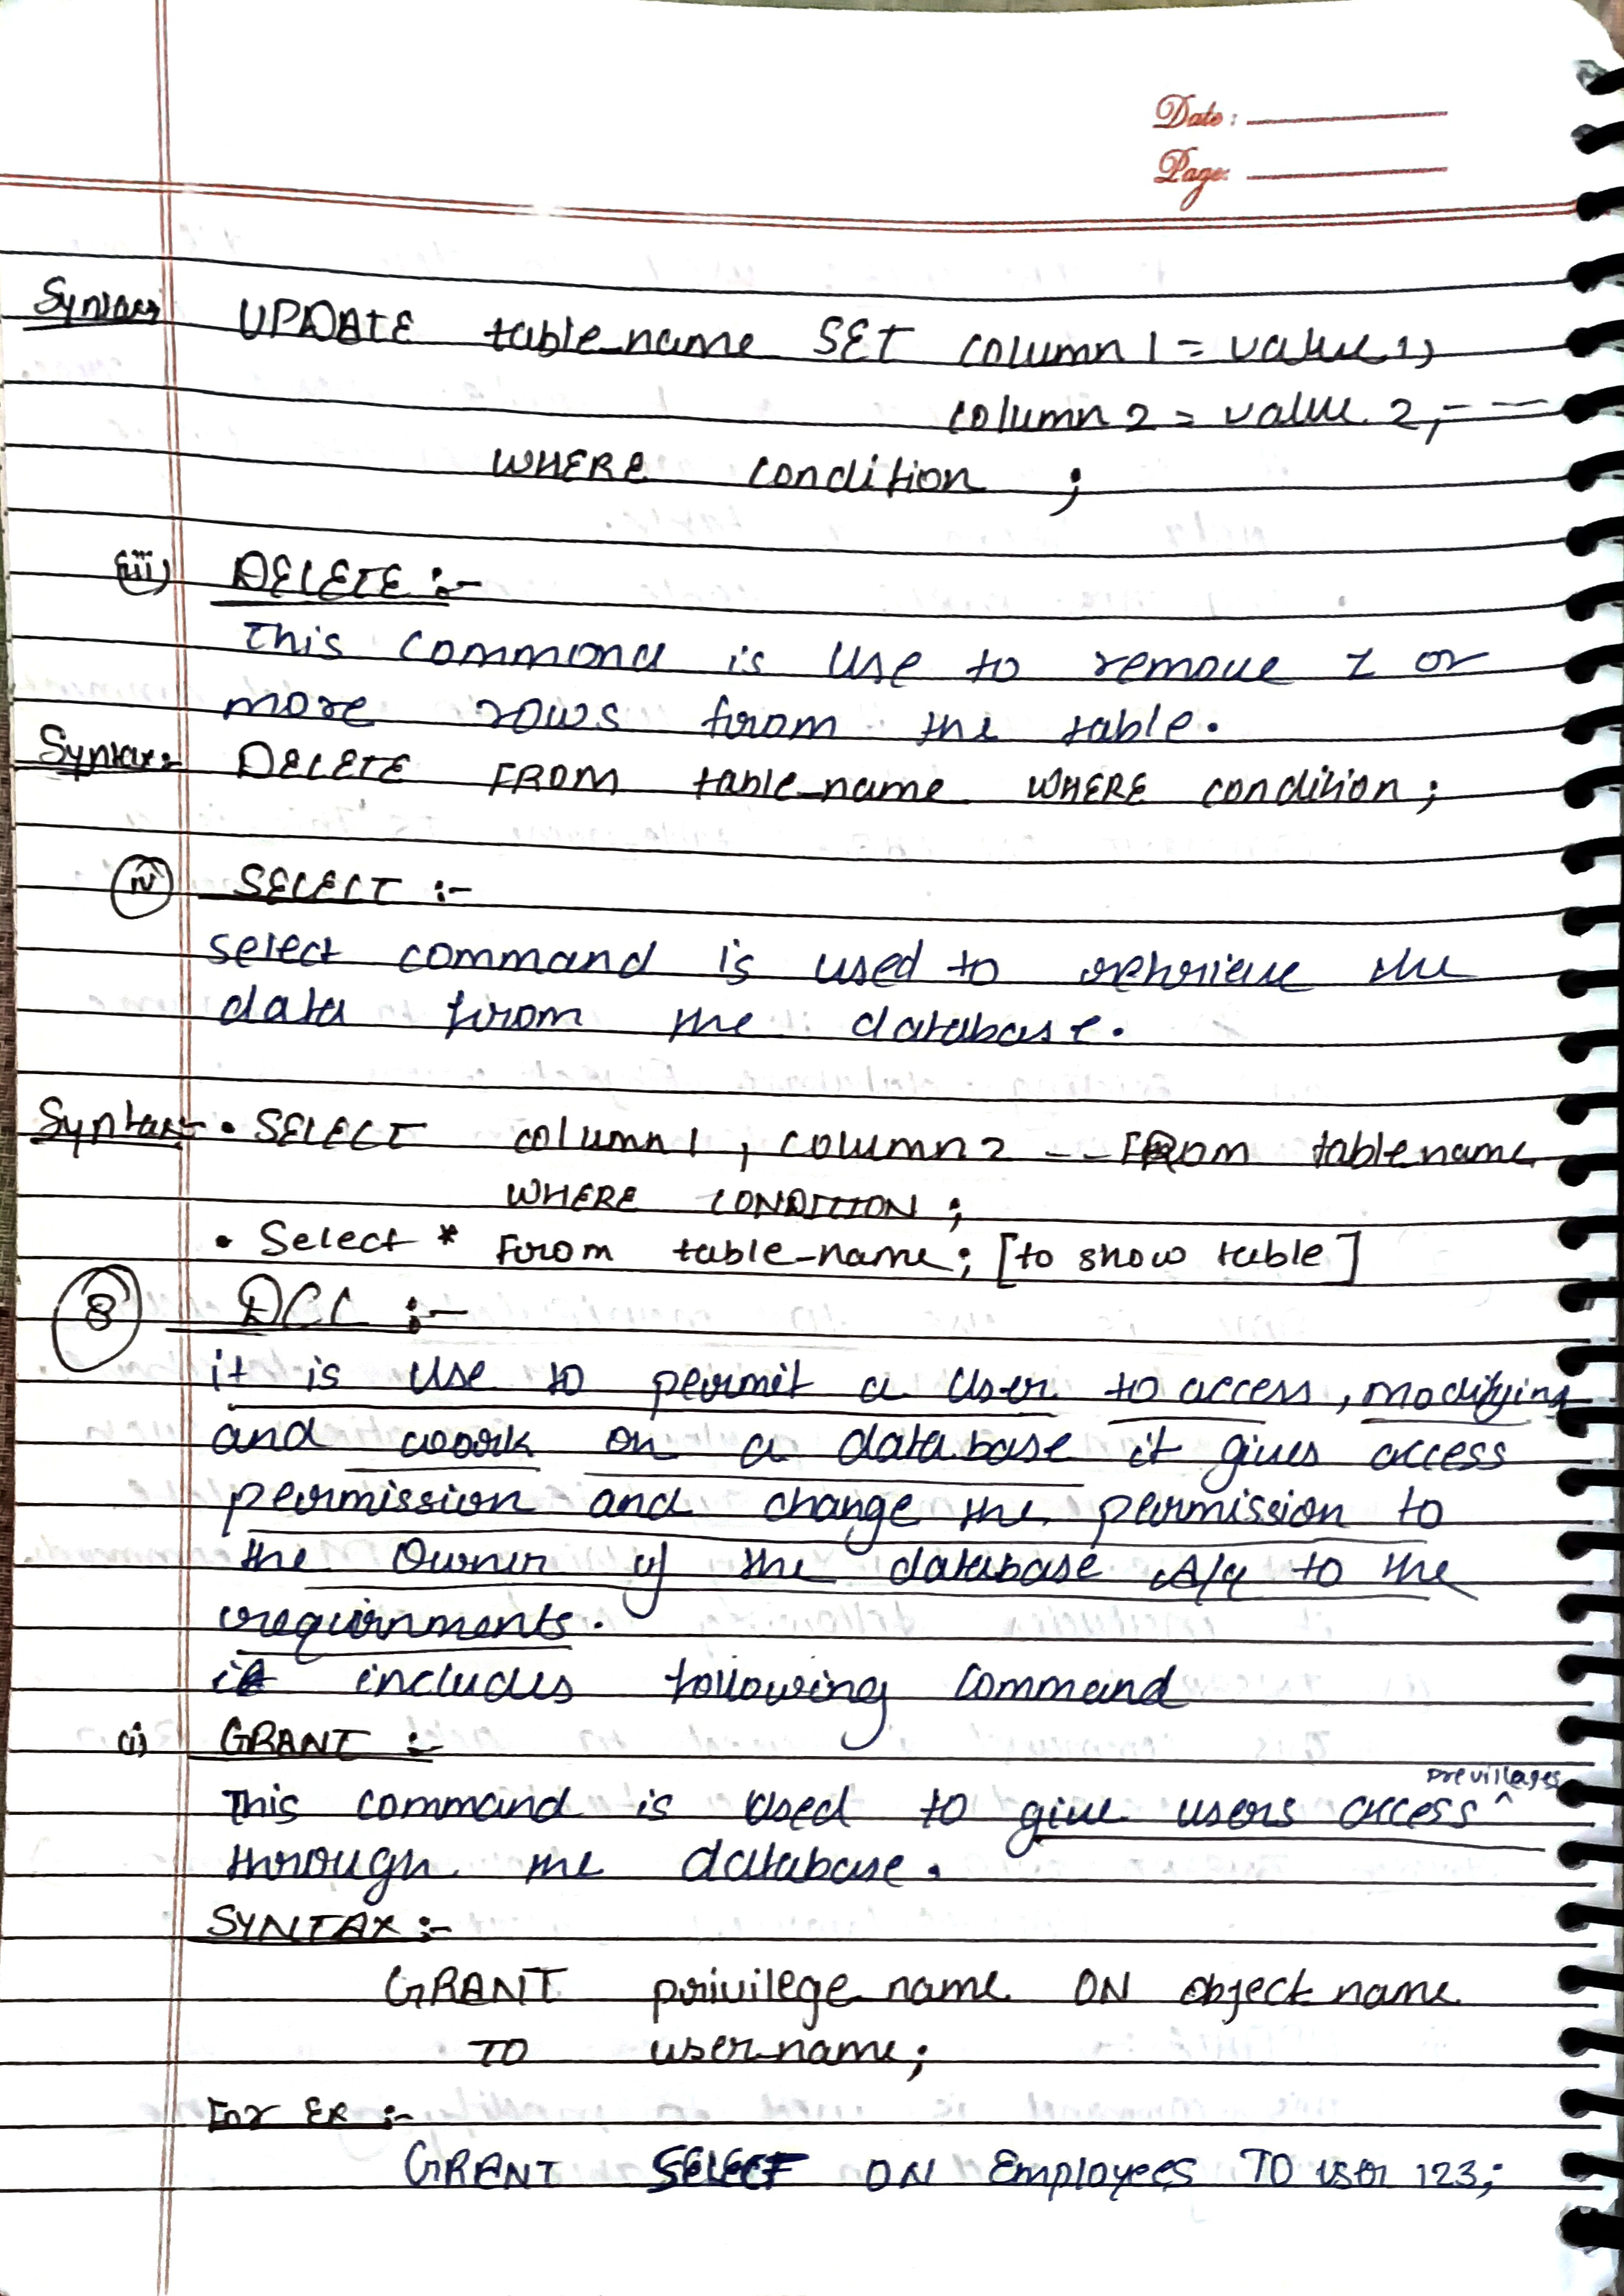 Date:
Page:
Syntax UPDATE table_name SET column1 = value1,
column2 = value 2, - - -
WHERE condition ;
(iii) DELETE :-
This command is use to remove 1 or
more rows from the table.
Syntax:- DELETE FROM table_name WHERE condition ;
(iv) SELECT :-
select command is used to retrieve the
data from the database.
Syntax:- • SELECT column1 , column2 - - FROM table name
WHERE CONDITION ;
• Select * From table_name; [to show table]
(8) DCL :-
it is use to permit a user to access, modifying
and work on a database it gives access
permission and change the permission to
the Owner of the database A/q to the
requirnments.
it includes following command
(i) GRANT :-
previllages
This command is used to give users access ^
through the database.
SYNTAX :-
GRANT privilege_name ON object name
TO user_name;
For Ex :-
GRANT SELECT ON Employees TO user 123;